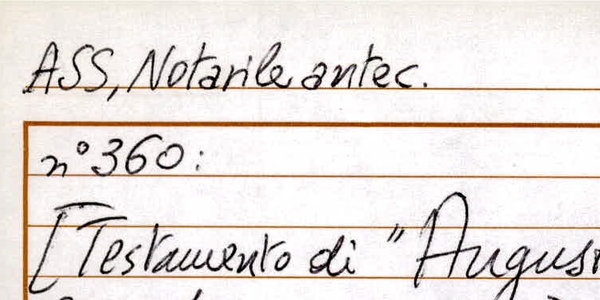 ASS, Notarile antec.
n° 360:
[Testamento di "